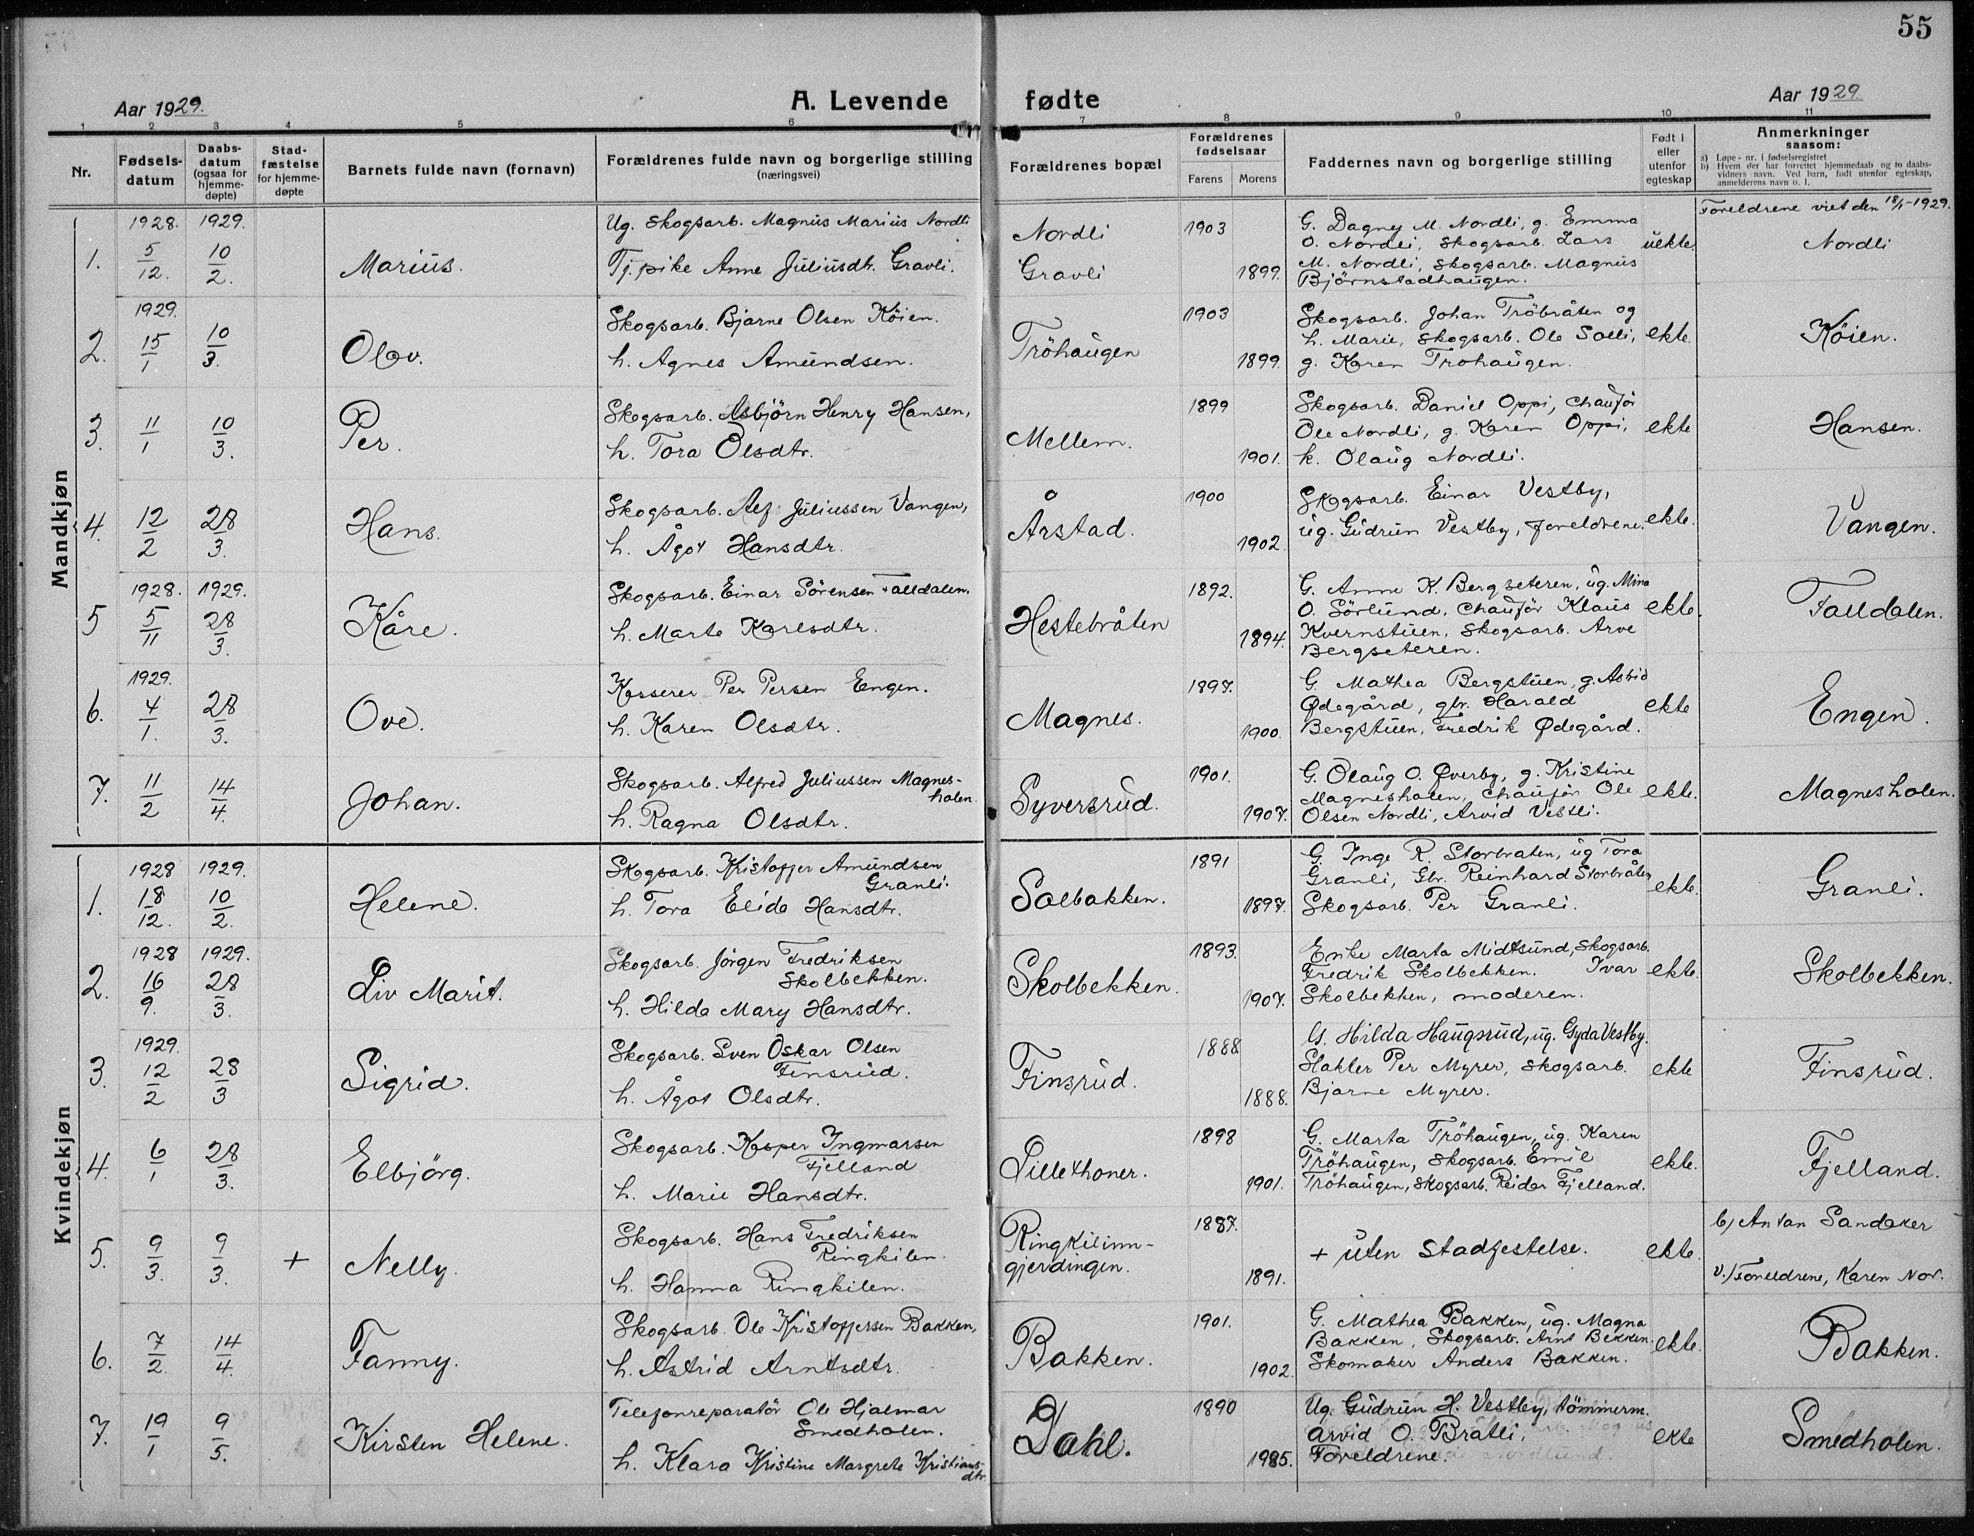 55
Aar 1929.
A. Levende fødte
Aar 1929.
1 2 3 4 5 6 7 8 9 10 11
Nr.
Fødsels-
datum
Daabs-
datum
(ogsaa for
hjemme-
døpte)
Stad-
fæstelse
for hjemme-
døpte
Barnets fulde navn (fornavn)
Forældrenes fulde navn og borgerlige stilling
(næringsvei)
Forældrenes bopæl
Forældrenes
fødselsaar
Farens Morens
Faddernes navn og borgerlige stilling
Født i
eller
utenfor
egteskap
Anmerkninger
saasom:
a) Løpe-nr. i fødselsregistret
b) Hvem der har forrettet hjemmedaab og to daabs-
vidners navn. Ved barn, født utenfor egteskap,
anmelderens navn o. l.
Mandkjøn
1.
1928. 5/12.
1929. 10/2.
Marius.
Ug. Skogsarb. Magnus Marius Nordli
Tj.pike Anne Juliusdt. Gravli.
Nordli
Gravli
1903
1899.
G. Dagny M. Nordli, g. Emma
O. Nordli, Skogsarb. Lars
M. Nordli, Skogsarb. Magnus
Bjørnstadhaugen.
uekte.
Foreldrene viet den 18/1-1929.
Nordli
2.
1929. 15/1
10/3.
Olav.
Skogsarb. Bjarne Olsen Köien.
h. Agnes Amundsen.
Tröhaugen
1903
1899.
Skogsarb. Johan Tröbråten og
h. Marie, Skogsarb. Ole Solli,
g. Karen Trohaugen.
ekte.
Köien.
3.
11/1
10/3.
Per.
Skogsarb. Asbjörn Henry Hansen,
h. Tora Olsdtr.
Mellem.
1899
1901.
Skogsarb. Daniel Oppi, chaufør
Ole Nordli, g. Karen Oppi,
k. Olaug Nordli.
ekte
Hansen.
4.
12/2
28/3.
Hans.
Skogsarb. Alf Juliussen Vangen,
h. Ågot Hansdtr.
Årstad.
1900
1902.
Skogsarb. Einar Vestby,
ug. Gudrun Vestby, foreldrene.
ekte.
Vangen.
5
1928. 5/11
1929. 28/3.
Kåre.
Skogsarb. Einar Sörensen Falldalen.
h. Marte Karlsdtr.
Hestebråten
1892.
1894.
G. Anne K. Bergseteren, ug. Mina
O. Sörlund, Chauför Klaus
Kvernstuen, Skogsarb. Arve
Bergseteren.
ekte.
Falldalen.
6.
1929. 4/1.
28/3.
Ove.
Kasserer Per Persen Engen.
h. Karen Olsdtr.
Magnes.
1897.
1900.
G. Mathea Bergstuen, g. Astrid
Ødegård, gbr. Harald
Bergstuen, Fredrik Ødegård.
ekte
Engen.
7.
11/2
14/4.
Johan.
Skogsarb. Alfred Juliussen Magnes-
holen.
h. Ragna Olsdtr.
Syversrud.
1901.
1907.
G. Olaug O. Øverby, g. Kristine
Magnesholen, chauför Ole
Olsen Nordli, Arvid Vestli.
ekte.
Magnesholen.
Kvindekjøn
1.
1928 18/12.
1929. 10/2.
Helene.
Skogsarb. Kristoffer Amundsen
Granli.
h. Tora Elida Hansdtr.
Solbakken.
1891
1897.
G. Inge R. Storbraten, ug Tora
Granli, Gbr. Reinhard Storbråten
Skogsarb. Per Granli.
ekte.
Granli.
2.
1928 16/9.
1929. 28/3.
Liv Marit.
Skogsarb. Jörgen Fredriksen
Skolbekken.
h. Hilda Mary Hansdtr.
Skolbekken.
1893.
1907.
Enke Marta Midtsund, Skogsarb.
Fredrik Skolbekken. Ivar
Skolbekken, moderen.
ekte.
Skolbekken.
3.
1929. 12/2
28/3
Sigrid.
Skogsarb. Sven Oskar Olsen
Finsrud.
h. Ågot Olsdtr.
Finsrud.
1888
1888.
G. Hilda Haugsrud, ug. Gyda Vestby.
Slakter Per Myrer, Skogsarb.
Bjarne Myrer.
ekte
Finsrud.
4.
6/1
28/3.
Elbjörg.
Skogsarb. Kasper Ingmarsen
Fjelland
h. Marie Hansdtr.
Lillethoner.
1898
1901.
G. Marta Tröhaugen, ug. Karen
Tröhaugen, Skogsarb. Emil
Tröhaugen, Skogsarb. Reidar Fjelland.
ekte.
Fjelland.
5.
9/3.
9/3.
+
Nelly.
Skogsarb. Hans Fredriksen
Ringkilen.
h. Hanna Ringkilen.
Ringkilinn-
gjerdingen.
1887.
1891.
+ uten Stadfestelse.
ekte.
b/ Anton Sandaker
v./Foreldrene, Karen Nor.
6.
7/2.
14/4.
Fanny.
Skogsarb. Ole Kristoffersen Bakken,
h. Astrid Arntsdtr.
Bakken.
1901.
1902.
G. Mathea Bakken, ug. Magna
Bakken, Skogsarb. Arnt Bekken.
Skomaker Anders Bakken.
ekte.
Bakken.
7.
19/1
9/5.
Kirsten Helene.
Telefonreparatör Ole Hjalmar
Smedholen.
h. Klara Kristine Margrete Kristians-
dtr.
Dahl.
1890
Ug. Gudrun H. Vestby, tömmerm.
Arvid O. Bråtli,
Foreldrene.
ekte
Smedholen.